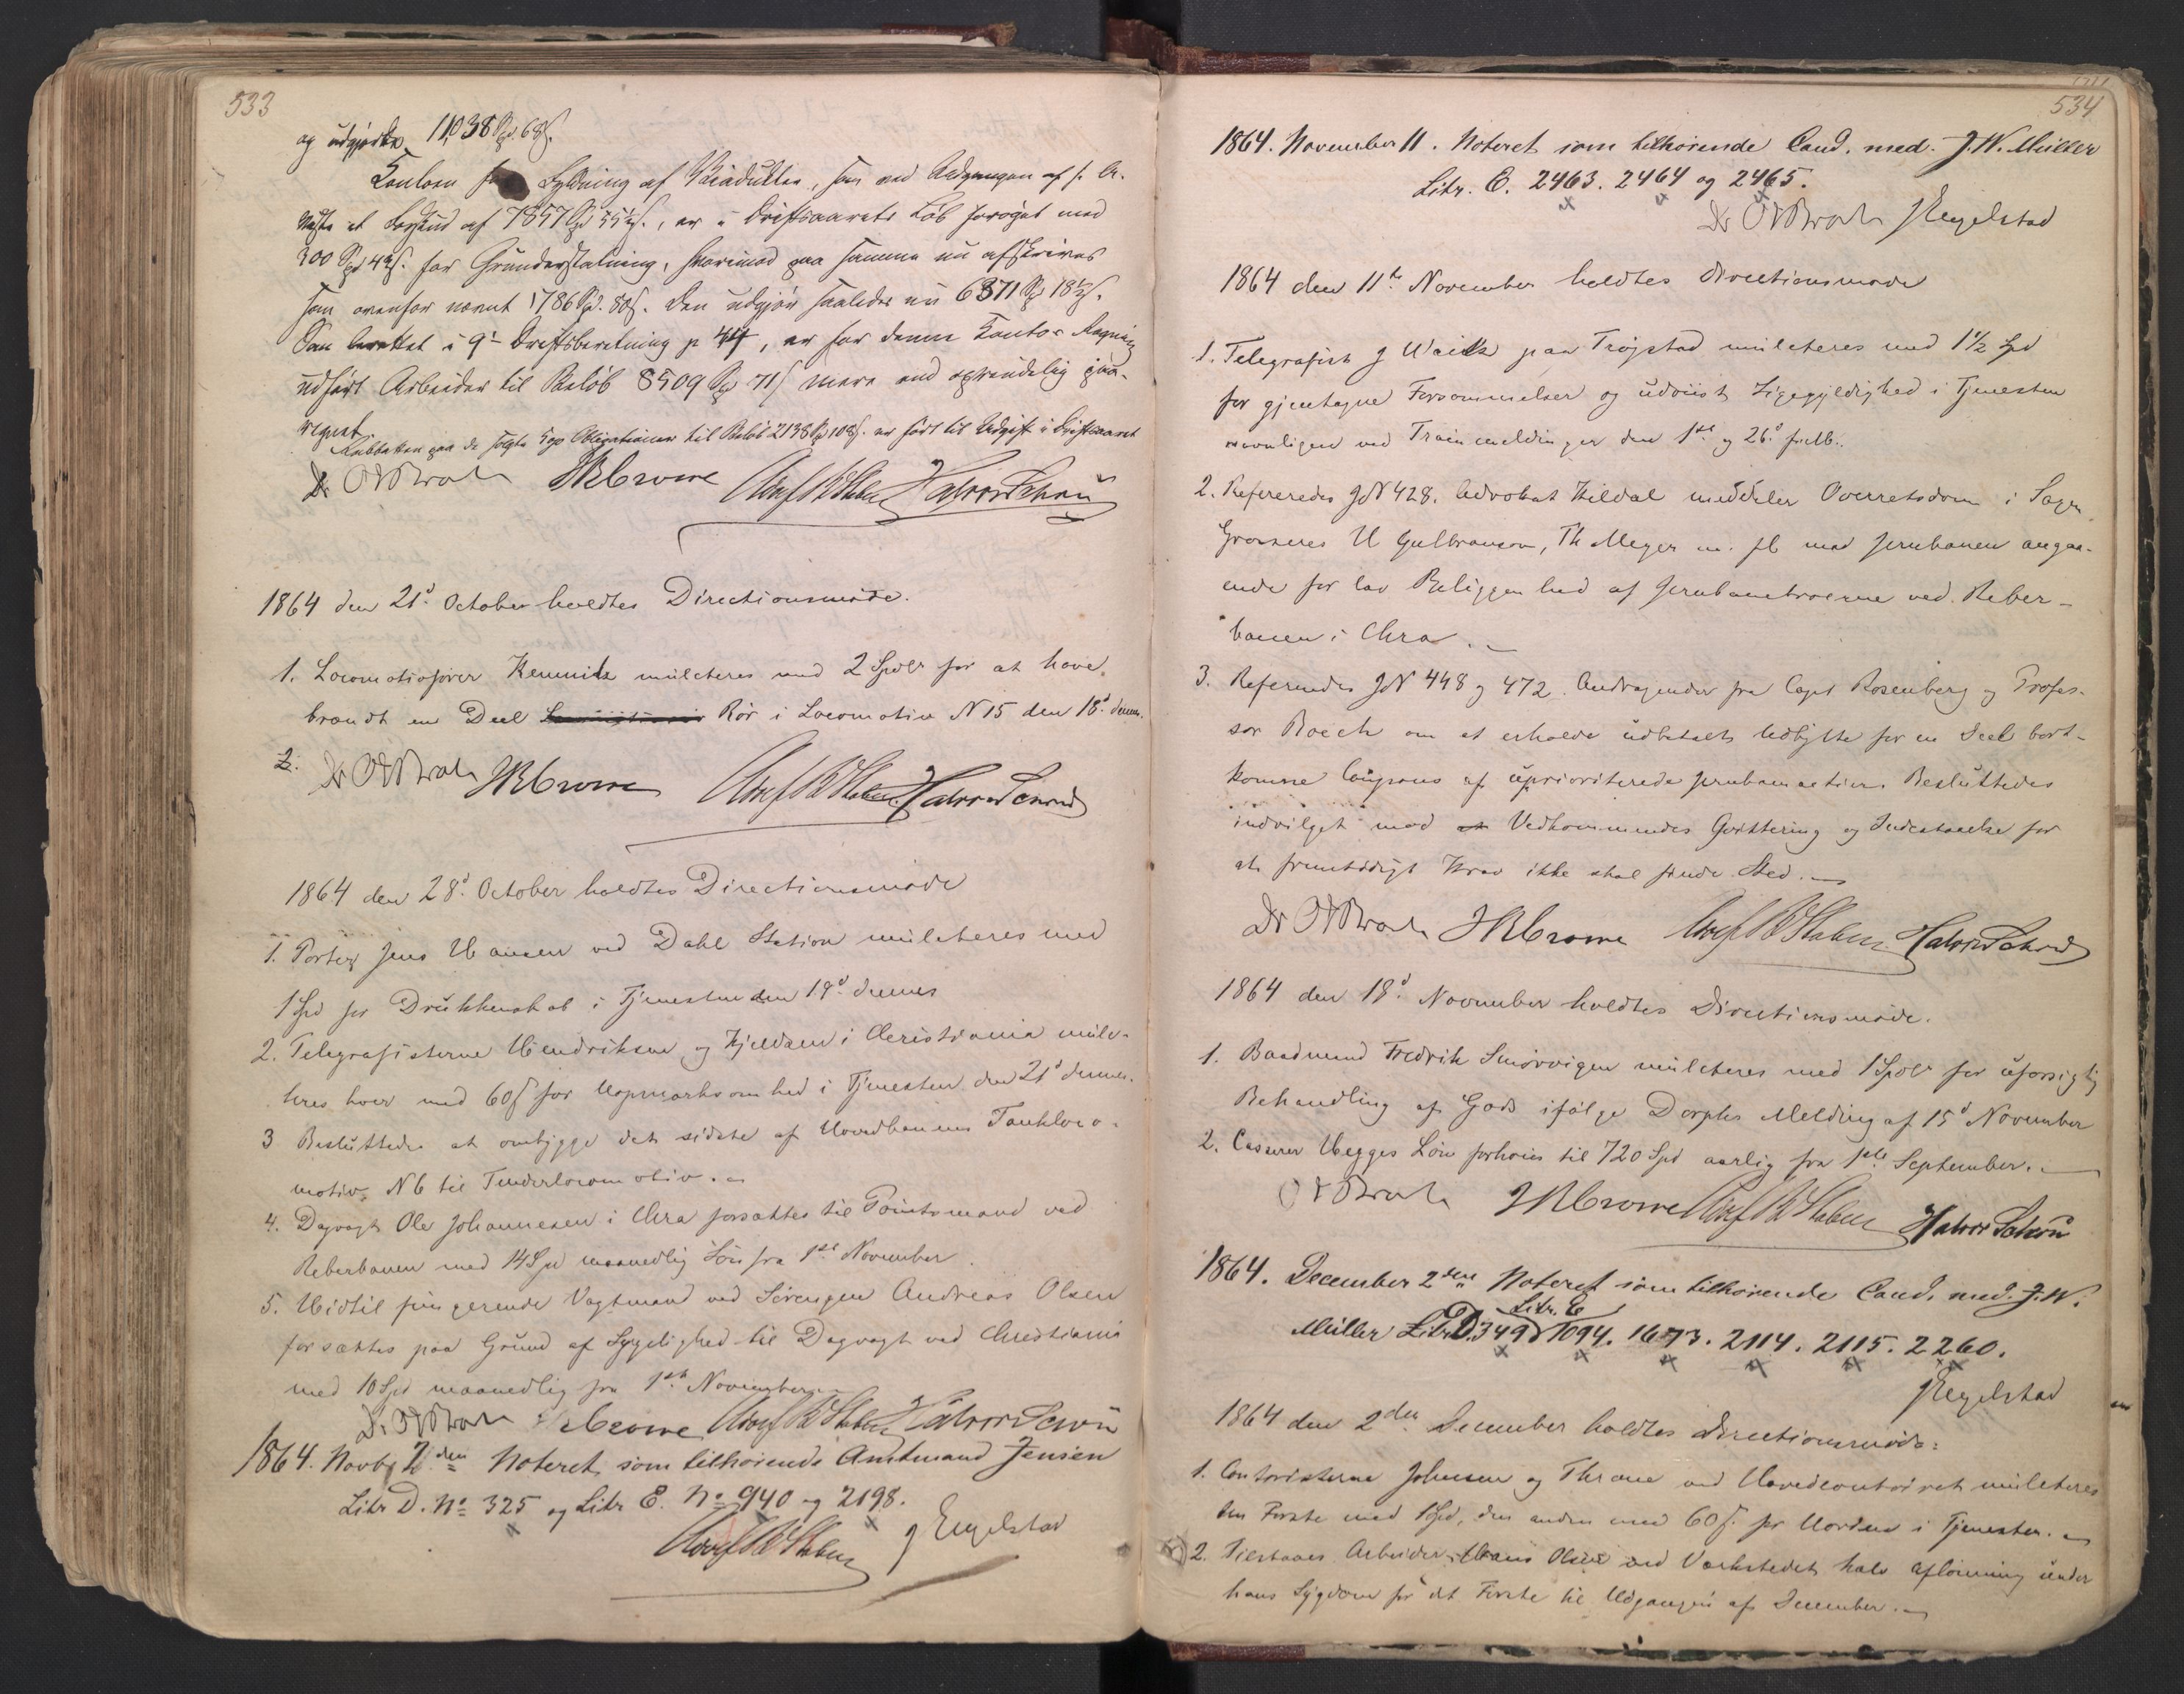 533
og udgjorde 11,038 Spd. 68 s.
Contoen for Fyldning af Viaducter, som ved Udgangen af f. A.
viste et Forskud af 7857 Spd 55½ s., er i Driftsaarets Løb forøget med
300 Spd 43 s. for Grunderstatning, hvorimod paa samme nu afskrives
som ovenfor nævnt 1786 Spd. 80 s. Den udgjør saaledes nu 6371 Spd 18½ s.
Som berettet i 9de Driftsberetning p 44, er for denne Contos Regning
udført Arbeider til Beløb 8509 Spd 71 s mere end oprindelig paa-
regnet.
Rabatten paa de solgte Obligationer til Beløb 2138 Spd 108 s. er ført til Udgift i Driftsaaret
Dr O J Broch JRCrowe Halvor Schou
1864 den 21d. October holdtes Directionsmöde.
1. Locomotivförer Kemnitz mulcteres med 2 Spdlr for at have
brændt en Deel Rör i Locomotiv N 15 den 18d. dennes.
2. Dr O J Broch JRCrowe Halvor Schou
1864 den 28d. October holdtes Directionsmöde
1. Porter Jens Hansen ved Dahl Station mulcteres med
1 Spd for Drukkenskab i Tjenesten den 19d. dennes
2. Telegrafisterne Hendriksen og Kjeldsen i Christiania mulc-
teres hver med 60 s for Uopmærksomhed i Tjenesten den 21d dennes.
3 Besluttedes at ombygge det sidste af Hovedbanens Tankloco-
motiv, N 6 til Tenderlocomotiv. –
4. Dagvagt Ole Johannesen i Chra forsættes til Pointsmand ved
Reberbanen med 14 Spd maanedlig Lön fra 1ste November.
5. Hidtil fungerende Vagtmand ved Sörengen Andreas Olsen
forsættes paa Grund af Sygelighed til Dagvagt ved Christiania
med 10 Spd maanedlig fra 1ste November.
Dr O J Broch JRCrowe Halvor Schou
1864. Novbr 2den Noteret som tilhörende Amtmand Jensen
Litr D. No 325 og Litr E. No 940 og 2198.
J Engelstad
534
1864. November 11. Noteret som tilhörende Cand. med. J. W. Müller
Litr. C. 2463. 2464 og 2465.
Dr O J Broch J Engelstad
1864 den 11te November holdtes Directionsmöde
1. Telegrafist J Waitz paa Tröjstad mulcteres med 1½ Spd
for gjentagne Forsömmelser og udviist Ligegyldighed i Tjenesten
navnligen ved Trainmeldinger den 1ste og 26d. f. M.
2. Refereredes JN 428. Advokat Hildal meddeler Overretsdom i Sagen
Grosserer H Gulbranson, Th Meyer m. fl. mod Jernbanen angaa-
ende for lav Beliggenhed af Jernbanebroerne ved Reber-
banen i Chra. –
3. Refereredes JN 448 og 472. Andragender fra Capt Rosenberg og Profes-
sor Boeck om at erholde udbetalt Udbytte for en Deel bort-
komne Coupons af uprioriterede Jernbaneactier. Besluttedes
indvilget mod at Vedkommendes Qvittering og Indestaaelse for
at fremtidigt Krav ikke skal finde Sted. –
Dr O J Broch JRCrowe Halvor Schou
1864 den 18d. November holdtes Directionsmöde.
1. Baadmand Fredrik Smörvigen mulcteres med 1 Spdlr for uforsigtig
Behandling af Gods ifölge Dorphs Melding af 15d November
2. Casserer Hegges Lön forhöies til 720 Spd aarlig fra 1ste September. –
O J Broch JRCrowe Halvor Schou
1864. December 2den Noteret som tilhörende Cand. med. J. W.
Litr. E
Müller Litr D. 349. 1094. 1673. 2114. 2115. 2260.
J Engelstad
1864 den 2den December holdtes Directionsmöde:
1. Contoristerne Johnsen og Thrane ved Hovedcontoiret mulcteres
den Förste med 1 Spd, den anden med 60 s. for Uorden i Tjenesten. –
2. Tilstaaes Arbeider Hans Olsen ved Værkstedet halv Aflönning under
hans Sygdom for det Förste til Udgangen af December. –